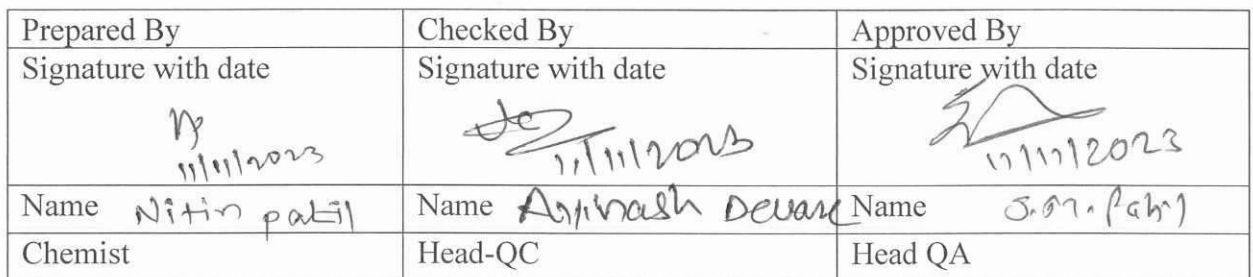 Prepared By Checked By Approved By
Signature with date Signature with date Signature with date
11/11/2023 11/11/2023 11/11/2023
Name Nitin patil Name Avinash Deware Name S.M. Patil
Chemist Head-QC Head QA